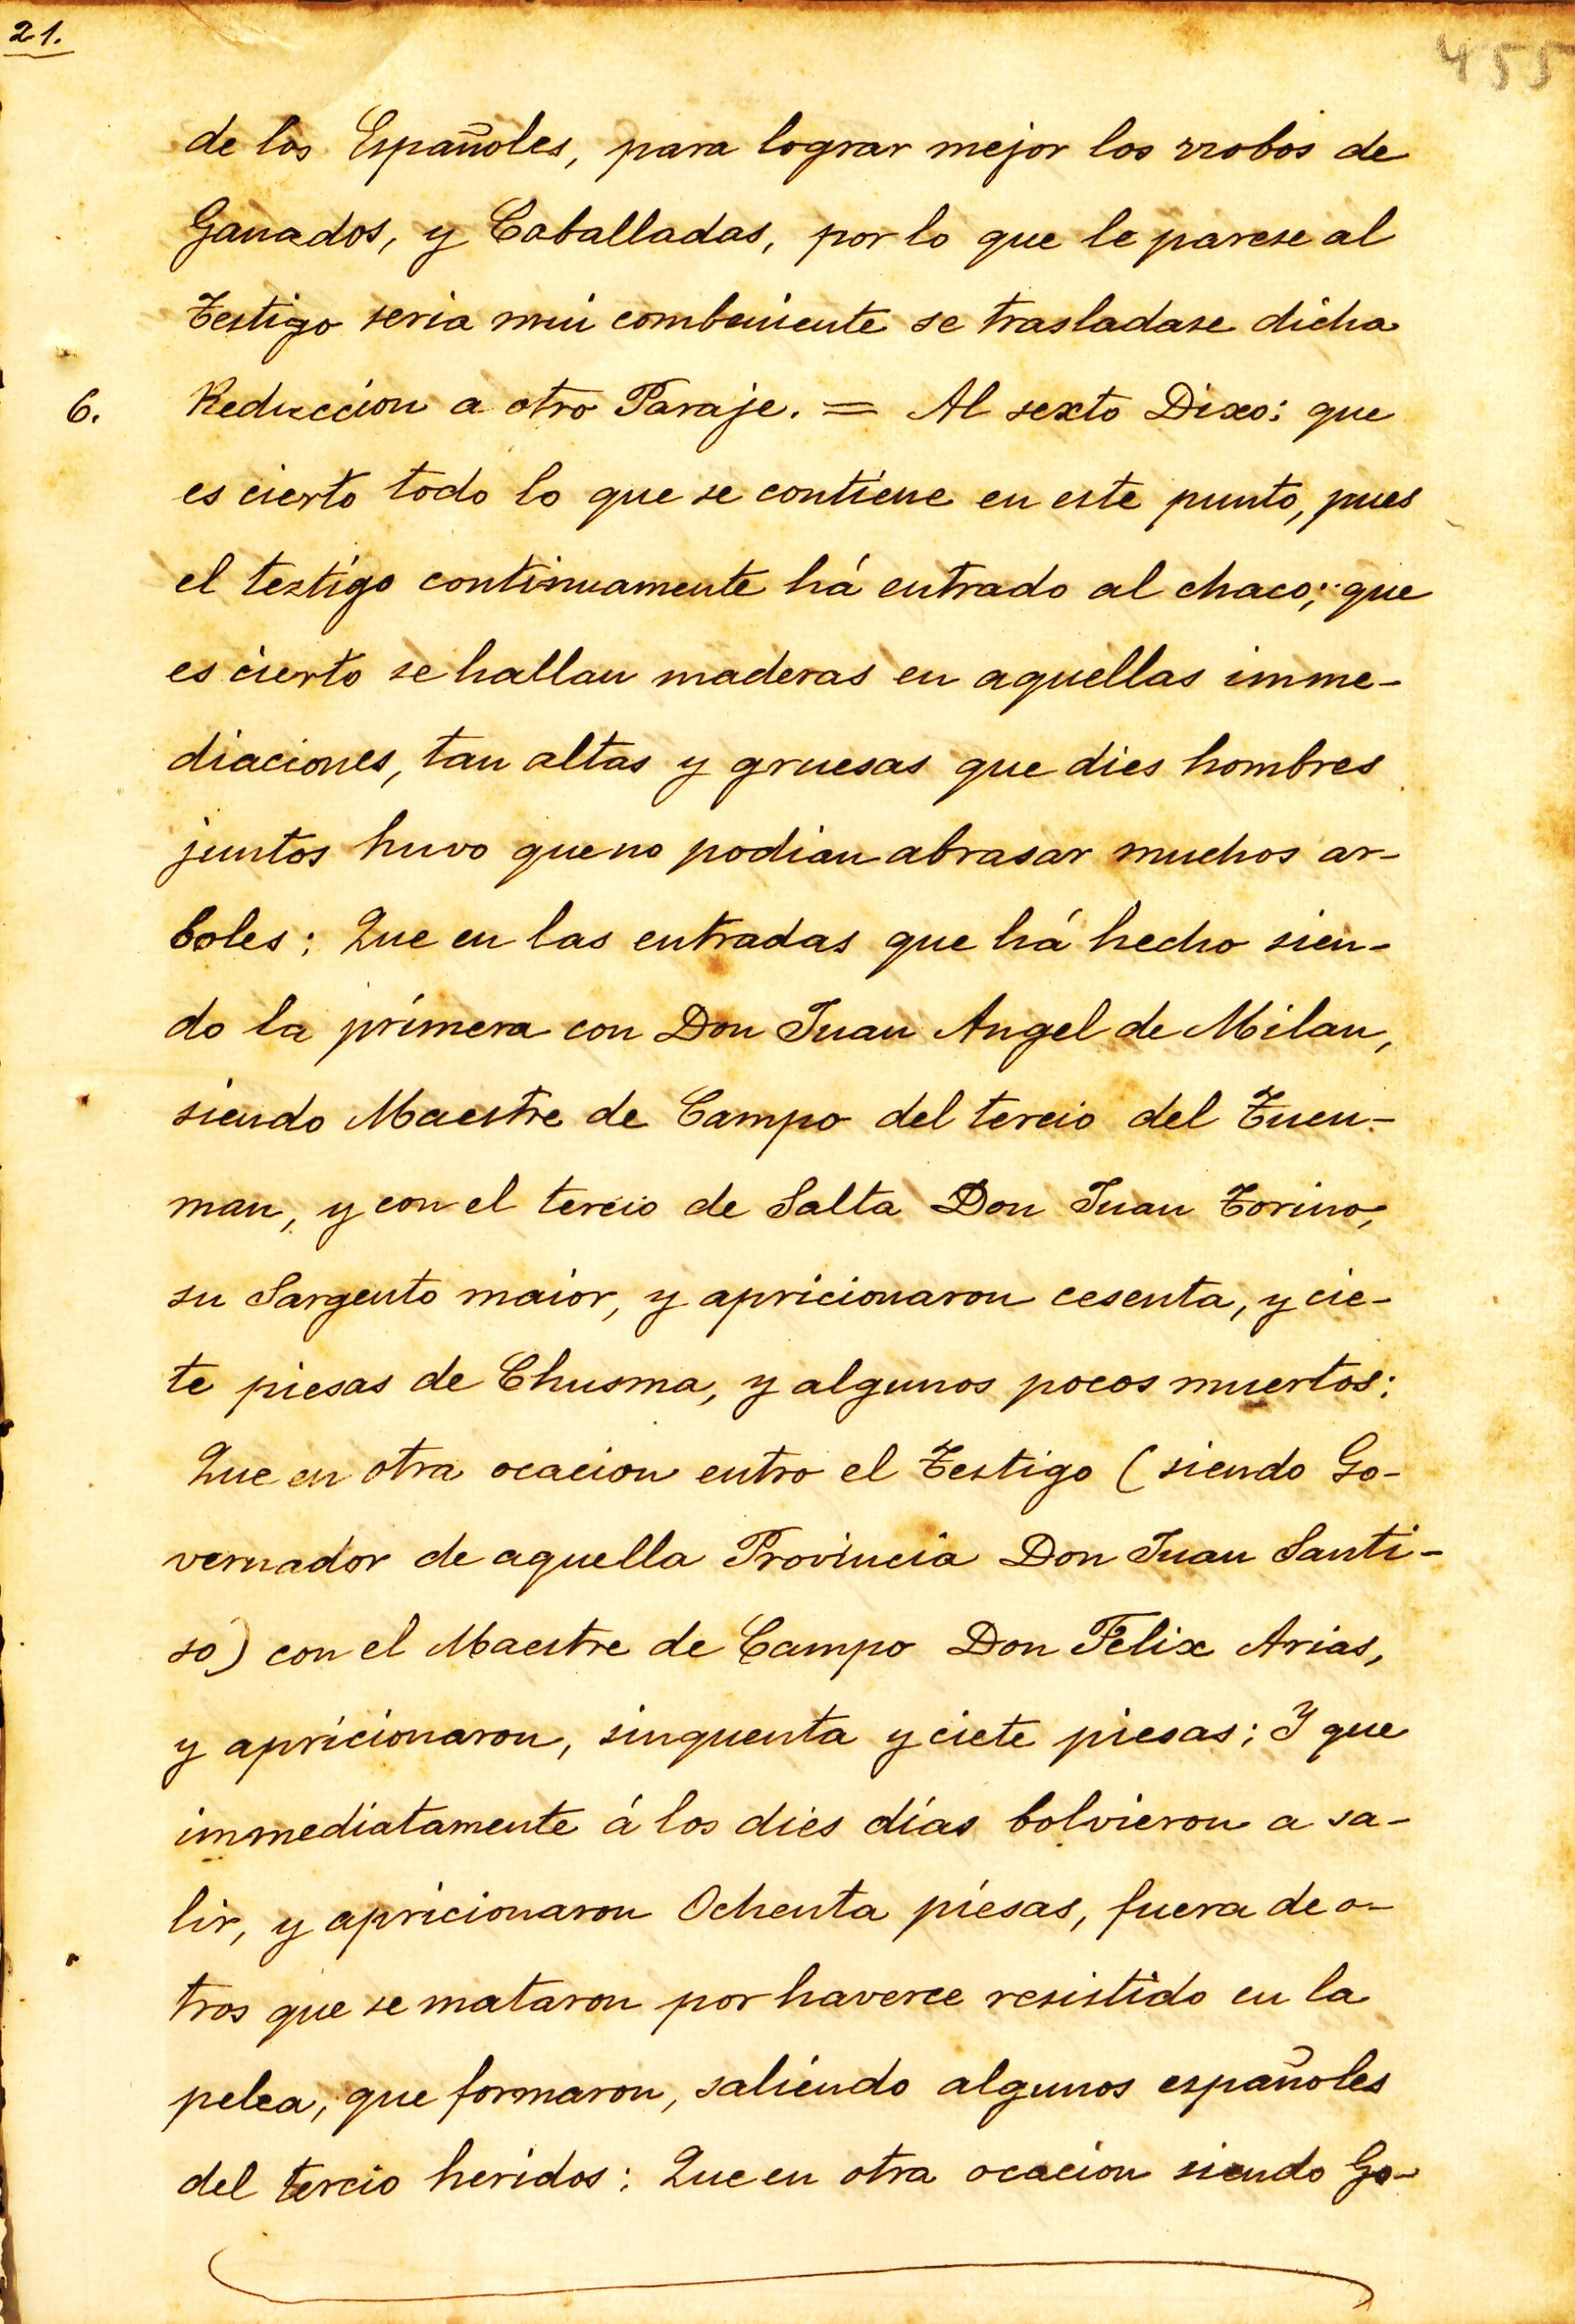 21.
455
de los Españoles, para lograr mejor los rrobos de
Ganados, y Caballadas, por lo que le parese al
Testigo seria mui combeniente se trasladase dicha
6. Reduccion a otro Paraje. = Al sexto Dixo: que
es cierto todo lo que se contiene en este punto, pues
el testigo continuamente há entrado al chaco; que
es cierto se hallan maderas en aquellas imme-
diaciones, tan altas y gruesas que dies hombres
juntos huvo que no podian abrasar muchos ar-
boles: Que en las entradas que há hecho sien-
do la primera con Don Juan Angel de Milan,
siendo Maestre de Campo del tercio del Tucu-
man, y con el tercio de Salta Don Juan Torino,
su Sargento maior, y apricionaron cesenta, y cie-
te piesas de Chusma, y algunos pocos muertos:
Que en otra ocacion entro el Testigo (siendo Go-
vernador de aquella Provincia Don Juan Santi-
so) con el Maestre de Campo Don Felix Arias,
y apricionaron, sinquenta y ciete piesas; Y que
immediatamente á los dies días bolvieron a sa-
lir, y apricionaron Ochenta piesas, fuera de o-
tros que se mataron por haverce resistido en la
pelea, que formaron, saliendo algunos españoles
del tercio heridos: Que en otra ocacion siendo Go-